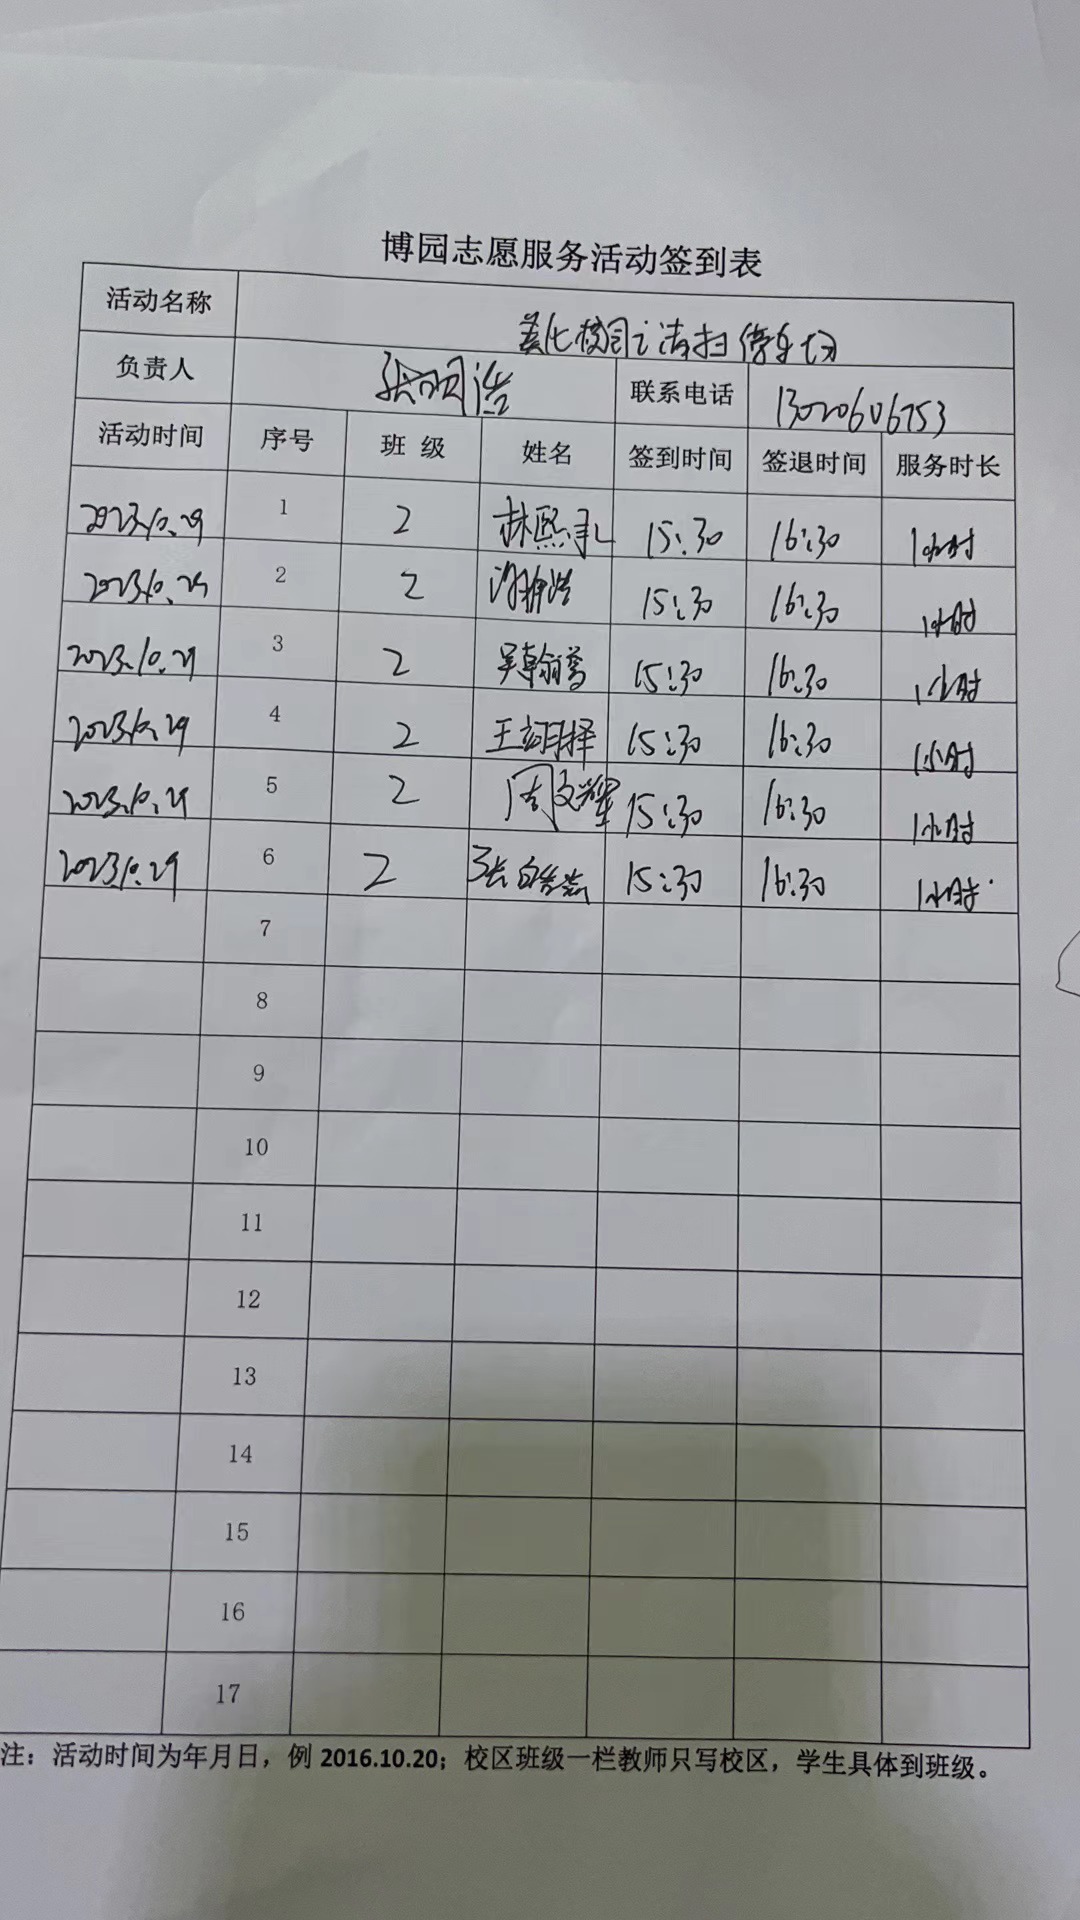 博园志愿服务活动签到表
活动名称 美化校园之清扫停车场
负责人 张明浩 联系电话 13020606753
活动时间 序号 班 级 姓名 签到时间 签退时间 服务时长
2023.10.29 1 2 林熙 15:30 16:30 1小时
2023.10.29 2 2 15:30 16:30 1小时
2023.10.29 3 2 吴翰誉 15:30 16:30 1小时
2023.10.29 4 2 王翊择 15:30 16:30 1小时
2023.10.29 5 2 周文耀 15:30 16:30 1小时
2023.10.29 6 2 张 15:30 16:30 1小时
7
8
9
10
11
12
13
14
15
16
17
注：活动时间为年月日，例 2016.10.20；校区班级一栏教师只写校区，学生具体到班级。